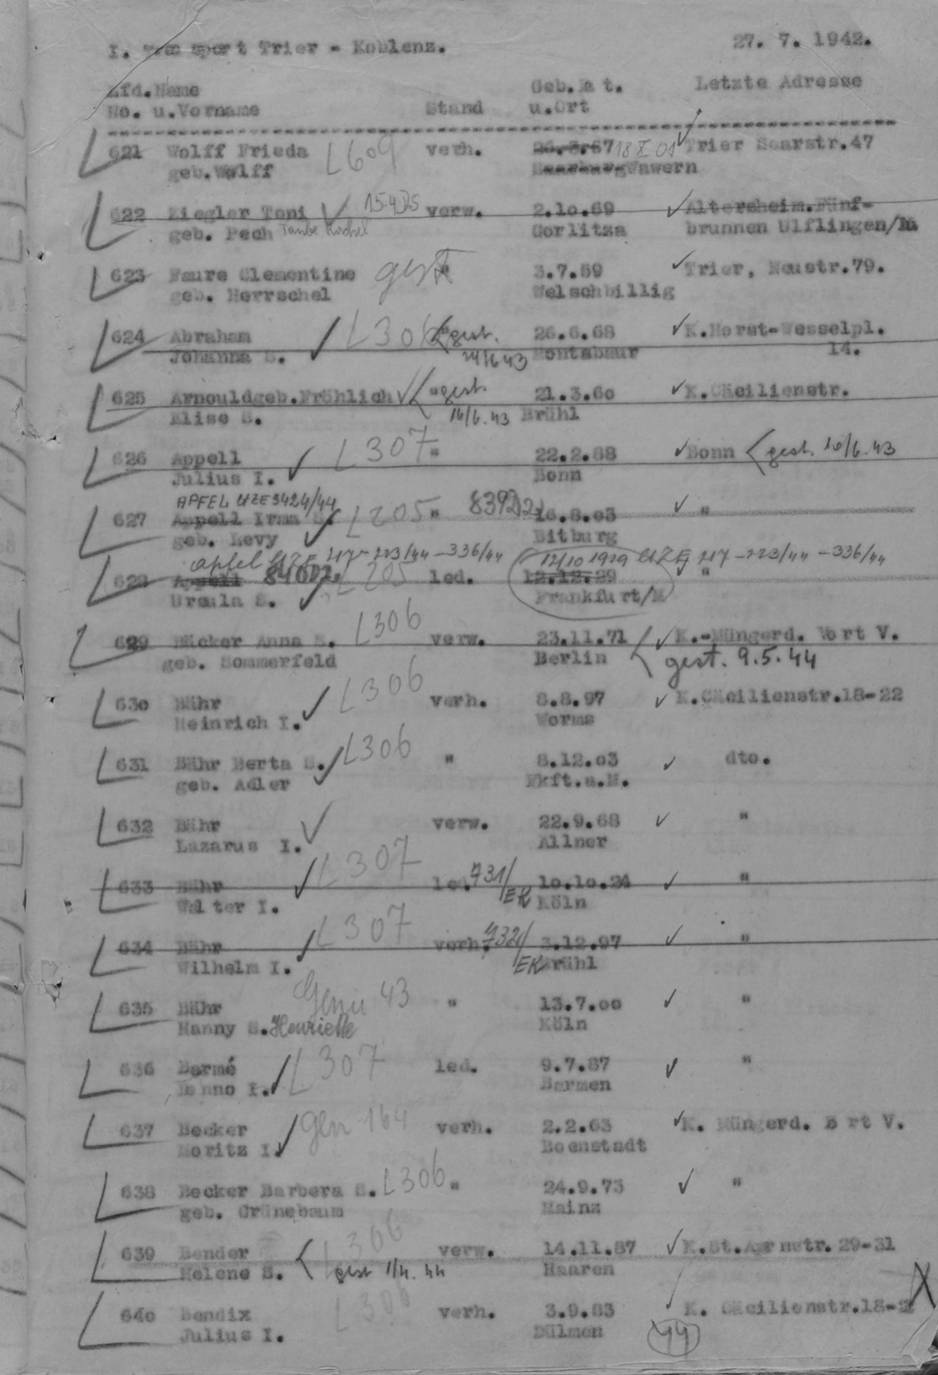 I. Transport Trier - Koblenz. 27. 7. 1942.
Lfd.Name Geb.Da t. Letzte Adresse
No. u.Vorname Stand u.Ort
621 Wolff Frieda L609 verh. Trier Saarstr.47
geb.Wolff Wawern
622 Ziegler Toni verw. 2.10.69 Altersheim.Fünf-
geb. Pech Gorlitza brunnen Ulflingen/
623 Faure Clementine gest 3.7.59 Trier, Neustr.79.
geb. Herrschel Welschbillig
624 Abraham L306 gest. 26.6.68 K.Horst-Wesselpl.
Johanna S. 24/6 43 Montabaur 14.
625 Arnouldgeb.Fröhlich " gest. 21.3.60 K.Cäcilienstr.
Elise S. 16/6.43 Brühl
626 Appell L307 " 22.2.88 Bonn gest. 43
Julius I. Bonn
APFEL UZE 3424/44
627 Appell Irma S. L205 " 16.8.03 "
geb. Levy Bitburg
apfel UZE 217-223/44-336/44 12/10 1929 UZE 217-223/44-336/44
628 Appell L205 led. 12.12.29 "
Ursula S. Frankfurt/M
629 Bäcker Anna S. L306 verw. 23.11.71 K.-Müngerd. Fort V.
geb. Sommerfeld Berlin gest. 9.5.44
630 Bähr L306 verh. 8.8.97 K.Cäcilienstr.18-22
Heinrich I. Worms
631 Bähr Berta S. L306 " 8.12.03 dto.
geb. Adler Fkft.a.M.
632 Bähr verw. 22.9.68 "
Lazarus I. Allner
633 Bähr L307 led. 731/ 10.10.24 "
Walter I. EK Köln
634 Bähr L307 verh. 732/ 3.12.97 "
Wilhelm I. EK Brühl
635 Bähr Genie 43 " 13.7.00 "
Hanny S. Henriette Köln
636 Barmé L307 led. 9.7.87 "
Benno I. Barmen
637 Becker Gen 164 verh. 2.2.63 K. Müngerd. F rt V.
Moritz I. Boenstadt
638 Becker Barbara S. L306 " 24.9.73 "
geb. Grünebaum Mainz
639 Bender L306 verw. 14.11.87 K.St.Apernstr. 29-31
Helene S. gest 1/4.44 Haaren
640 Bendix L306 verh. 3.9.83 K. Cäcilienstr.18-2
Julius I. Dülmen 44